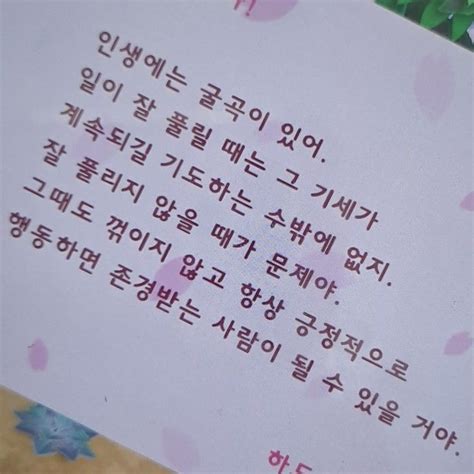 인생에는 굴곡이 있어.
일이 잘 풀릴 때는 그 기세가
계속되길 기도하는 수밖에 없지.
잘 풀리지 않을 때가 문제야.
그때도 꺾이지 않고 항상 긍정적으로
행동하면 존경받는 사람이 될 수 있을 거야.